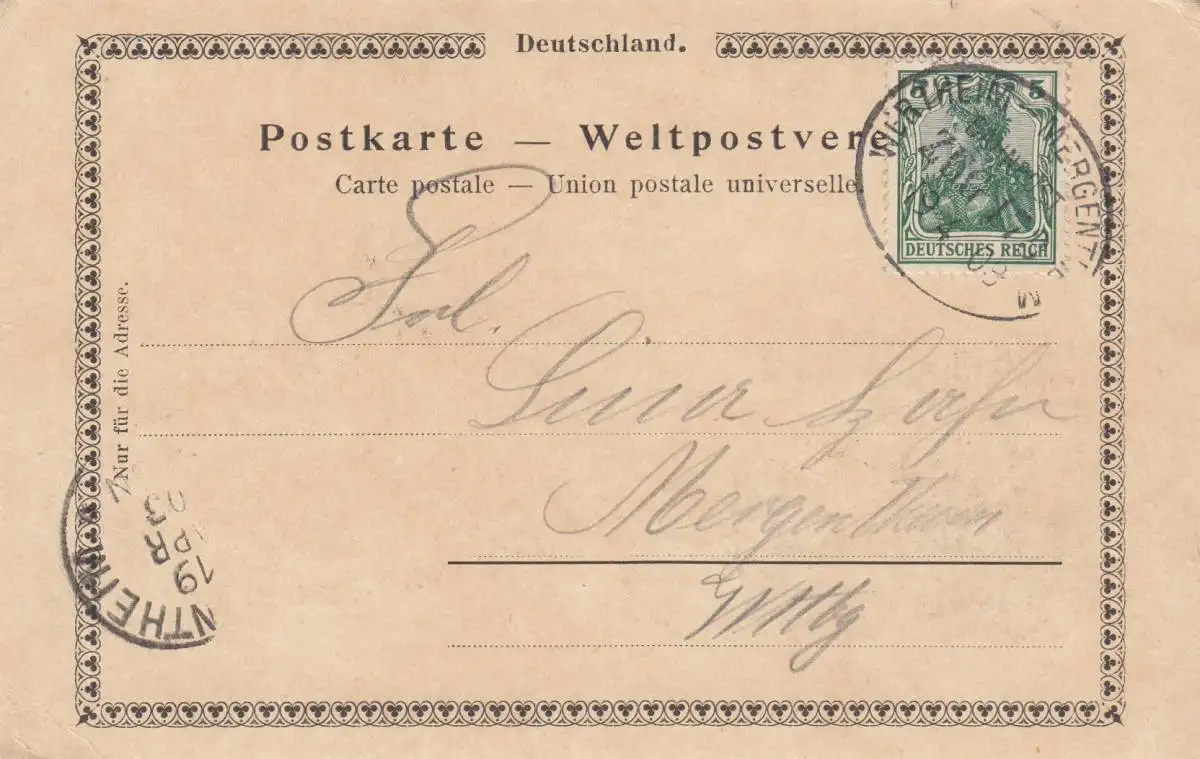 Deutschland.
Postkarte — Weltpostvere
Carte postale — Union postale universelle.
5 5
DEUTSCHES REICH
WERTHEIM MERGENT
03
Nur für die Adresse.
Frl.
Lina
Mergentheim
Wttbg
NTHEIM
19